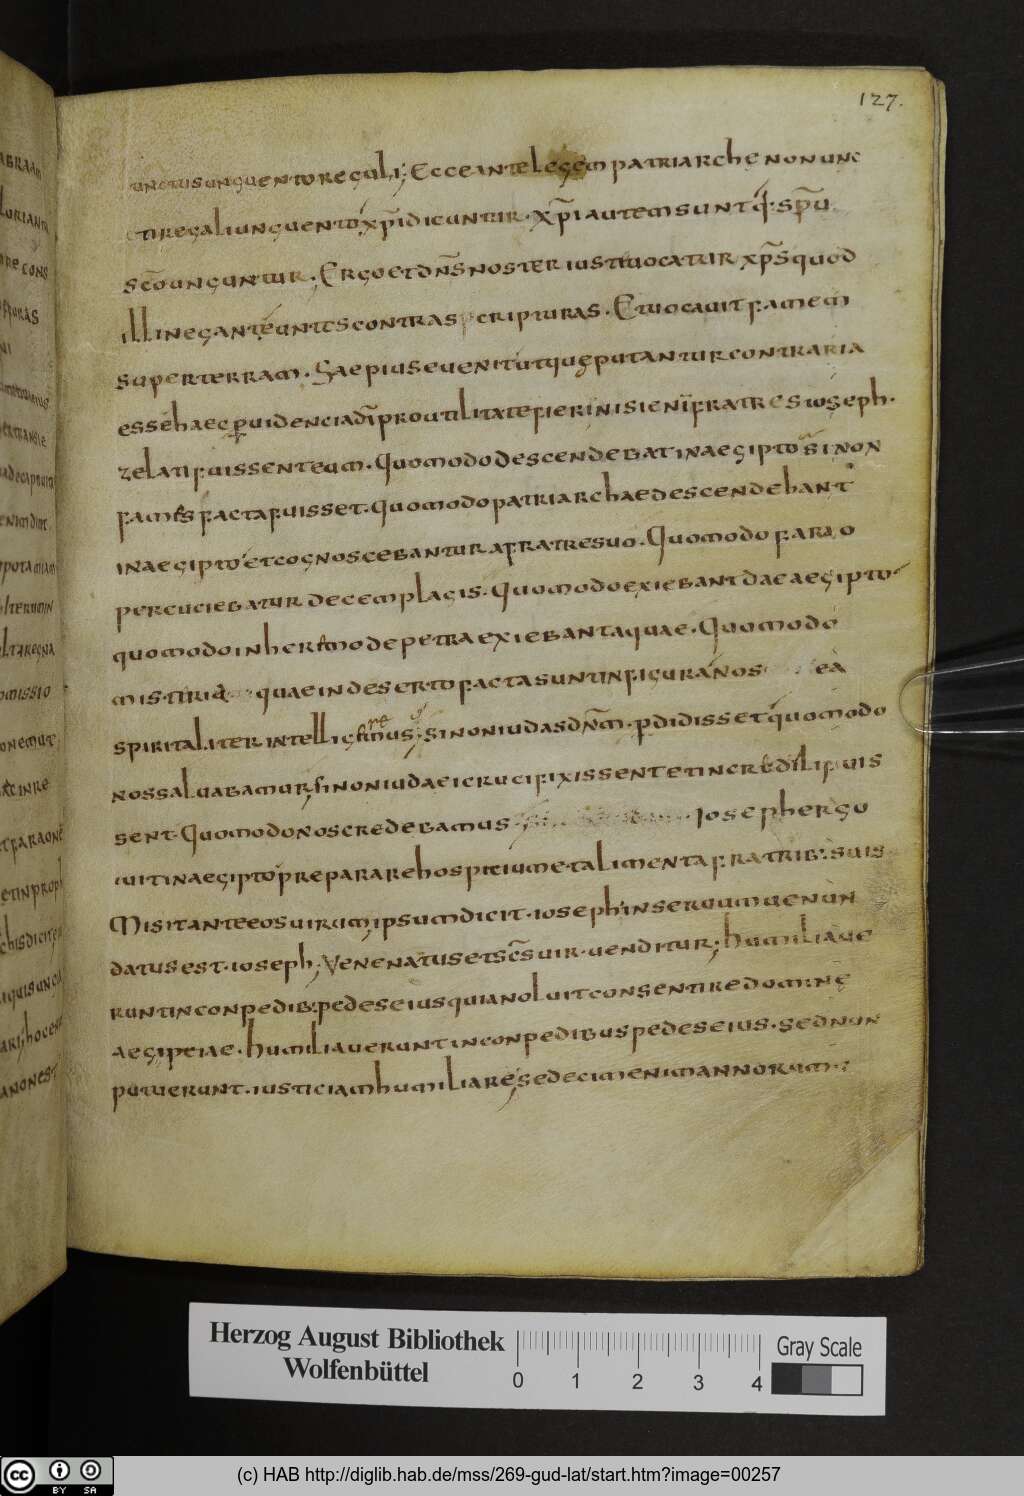 127.
unctus unguento regali; Ecce ante legem patriarche non unc
ti regali unguento xp̄i dicuntur. xp̄i autem sunt q̄ sp̄u
sc̄o unguntur. Ergo et dn̄s noster iuste uocatur xp̄s quod
illi negant eunt scontra scripturas. Et uocauit famem
super terram. Saepius euenit ut que putantur contraria
esse haec puidencia dī pro utilitate fieri nisi enī fratres ioseph.
zelati fuissent eum. Quomodo descendebat in aegipto si non
fames facta fuisset. Quomodo patriarchae descendebant
in aegipto et cognoscebantur a fratre suo. Quomodo farao
percuciebatur decem plagis. Quomodo exiebant dae aegipto
quomodo in hermo de petra exiebant aquae. Quomodo
misteria quae in deserto facta sunt in figura nos ea
spiritaliter intelligimus. si non iudas dn̄m. pdidisset quomodo
nos saluabamur. si non iudaei crucifixissent et increduli fuis
sent. Quomodo nos credebamus Ioseph ergo
uit in aegipto preparare hospitium et alimenta fratrib: suis
Misit ante eos uirum ipsum dicit. ioseph in seruum uenun
datus est. ioseph; Venenatus et sc̄s uir. uenditur; humiliaue
runt in conpedib: pedes eius quia noluit consentire domine
aegiptiae. humiliauerunt in conpedibus pedes eius. sed non
putuerunt. iusticiam humiliare; sedecim enim annorum
Herzog August Bibliothek
Wolfenbüttel
0 1 2 3 4
Gray Scale
cc BY SA
(c) HAB http://diglib.hab.de/mss/269-gud-lat/start.htm?image=00257